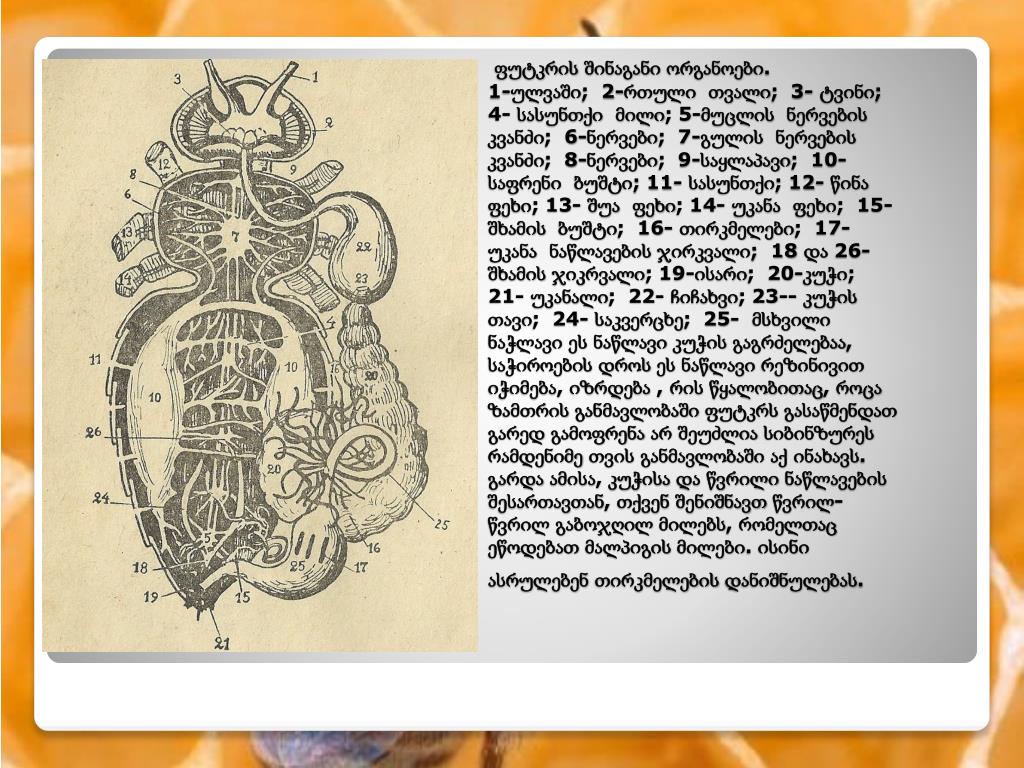 ფუტკრის შინაგანი ორგანოები.
1-ულვაში; 2-რთული თვალი; 3- ტვინი;
4- სასუნთქი მილი; 5-მუცლის ნერვების
კვანძი; 6-ნერვები; 7-გულის ნერვების
კვანძი; 8-ნერვები; 9-საყლაპავი; 10-
საფრენი ბუშტი; 11- სასუნთქი; 12- წინა
ფეხი; 13- შუა ფეხი; 14- უკანა ფეხი; 15-
შხამის ბუშტი; 16- თირკმელები; 17-
უკანა ნაწლავების ჯირკვალი; 18 და 26-
შხამის ჯიკრვალი; 19-ისარი; 20-კუჭი;
21- უკანალი; 22- ჩიჩახვი; 23-- კუჭის
თავი; 24- საკვერცხე; 25- მსხვილი
ნაჭლავი ეს ნაწლავი კუჭის გაგრძელებაა,
საჭიროების დროს ეს ნაწლავი რეზინივით
იჭიმება, იზრდება , რის წყალობითაც, როცა
ზამთრის განმავლობაში ფუტკრს გასაწმენდათ
გარედ გამოფრენა არ შეუძლია სიბინზურეს
რამდენიმე თვის განმავლობაში აქ ინახავს.
გარდა ამისა, კუჭისა და წვრილი ნაწლავების
შესართავთან, თქვენ შენიშნავთ წვრილ-
წვრილ გაბოჯღილ მილებს, რომელთაც
ეწოდებათ მალპიგის მილები. ისინი
ასრულებენ თირკმელების დანიშნულებას.
3 1
2
12 9
8
6
13 7 22
14 23
4
11
10 10 20
26
20
24
25
5 16
18 25 17
19 15
21